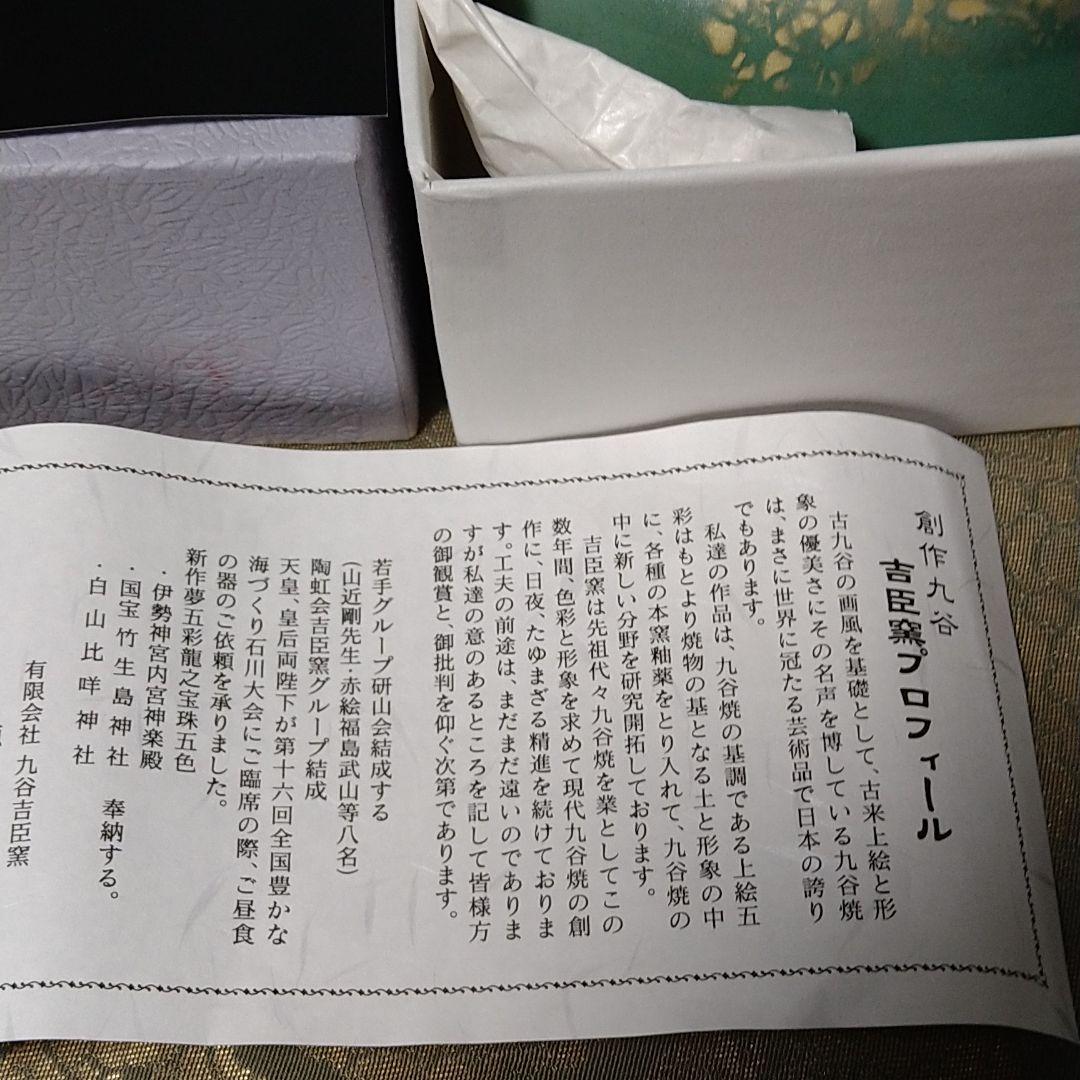 創作九谷
吉臣窯プロフィール
古九谷の画風を基礎として、古来上絵と形
象の優美さにその名声を博している九谷焼
は、まさに世界に冠たる芸術品で日本の誇り
でもあります。
私達の作品は、九谷焼の基調である上絵五
彩はもとより焼物の基となる土と形象の中
に、各種の本窯釉薬をとり入れて、九谷焼の
中に新しい分野を研究開拓しております。
吉臣窯は先祖代々九谷焼を業としてこの
数年間、色彩と形象を求めて現代九谷焼の創
作に、日夜、たゆまざる精進を続けておりま
す。工夫の前途は、まだまだ遠いのでありま
すが私達の意のあるところを記して皆様方
の御観賞と、御批判を仰ぐ次第であります。
若手グループ研山会結成する
(山近剛先生・赤絵福島武山等八名)
陶虹会吉臣窯グループ結成
天皇、皇后両陛下が第十六回全国豊かな
海づくり石川大会にご臨席の際、ご昼食
の器のご依頼を承りました。
新作夢五彩龍之宝珠五色
・伊勢神宮内宮神楽殿
・国宝竹生島神社 奉納する。
・白山比咩神社
有限会社 九谷吉臣窯